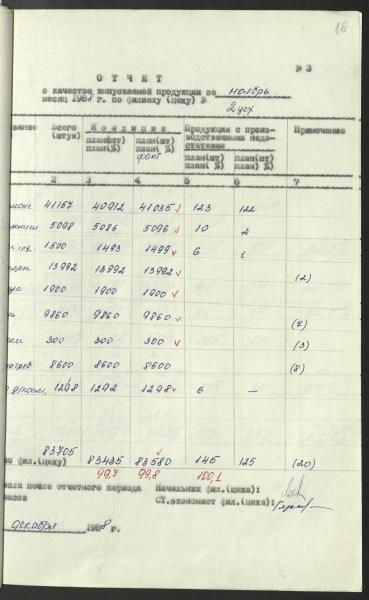 16
№ 3
О Т Ч Е Т
о качестве выпускаемой продукции за ноябрь
месяц 1968 г. по филиалу (цеху) №
2 цех
Всего (штук) Кондиция Продукция с производственными недостатками Примечание
план(шт) план(%) план(шт) план(%) факт план(шт) план(%) план(шт) план(%)
2 3 4 5 6 7
41157 40912 41035 123 122
5098 5086 5096 10 2
1500 1493 1499 6 1
13992 13992 13992 (2)
1900 1900 1900
9860 9860 9860 (7)
300 300 300 (3)
8600 8600 8600 (8)
1298 1292 1298 6 —
83705
фил.(цеху) 83435 83580 145 125 (20)
99,7 99,8 100,1
числа после отчетного периода Начальник фил.(цеха):
часов СТ.экономист фил.(цеха):
декабря 1968 г.